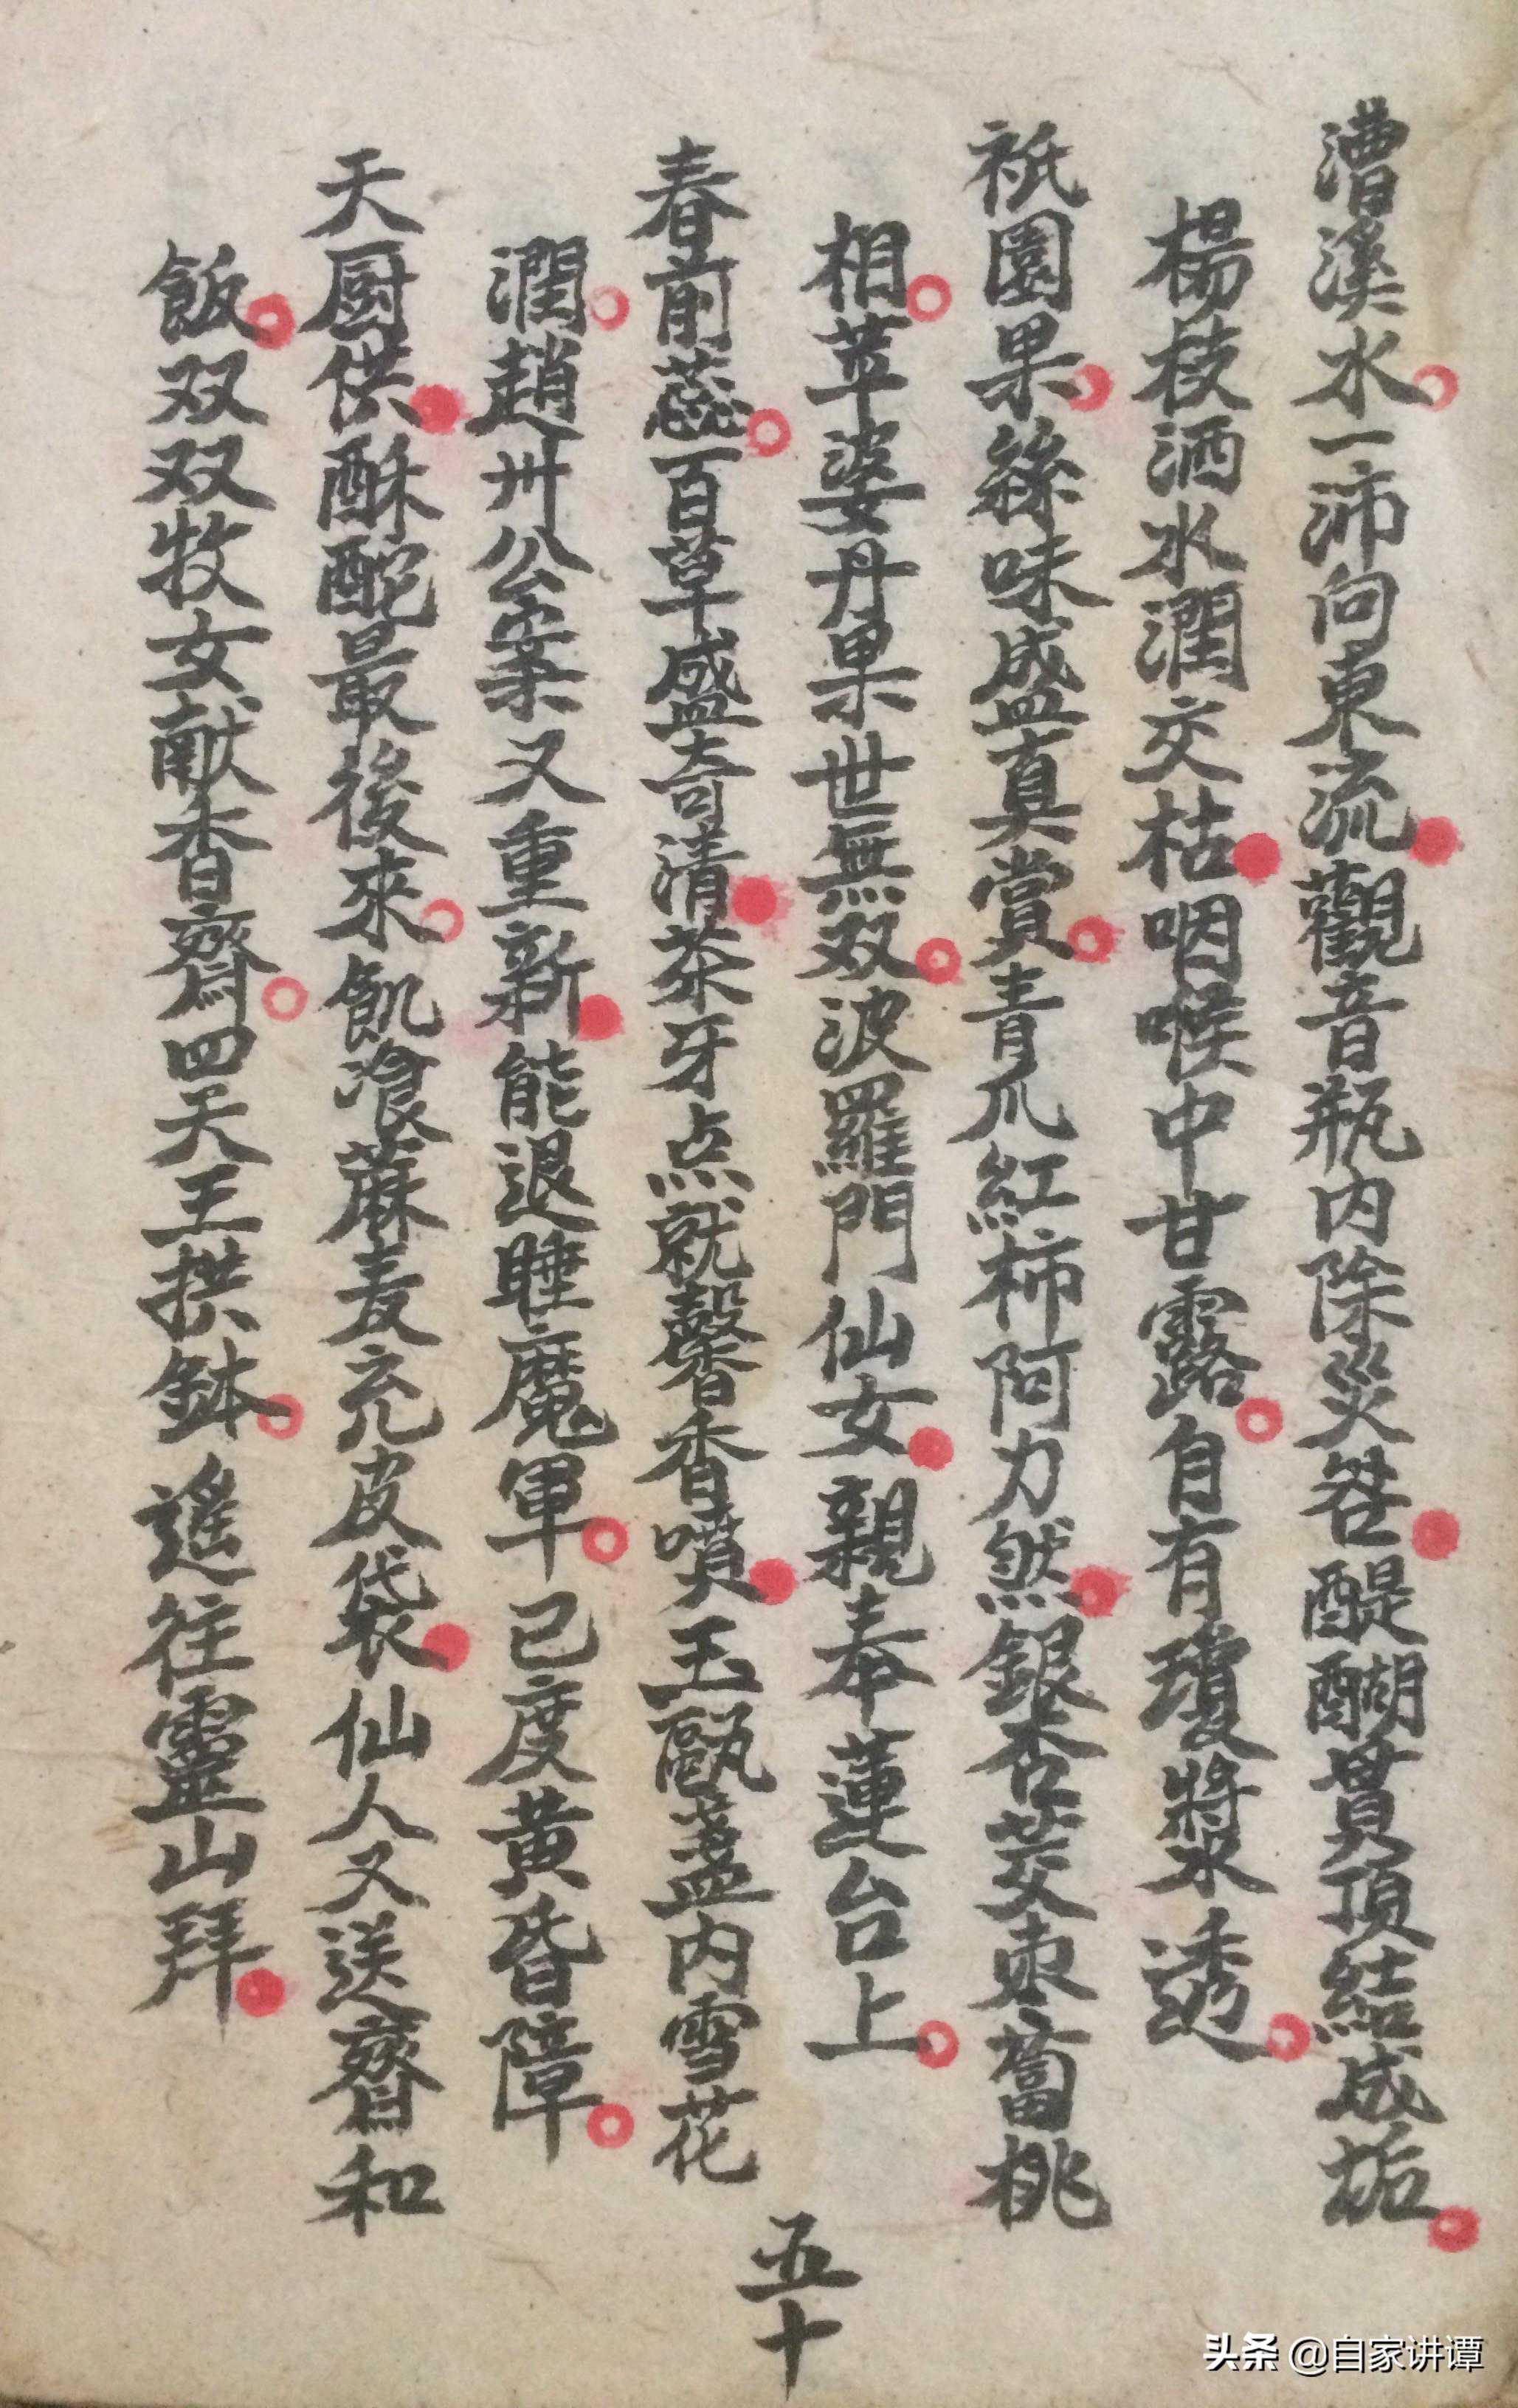 漕溪水一沛向東流觀音瓶内除災咎醍醐貫頂結成垢
楊枝洒水潤交枯咽喉中甘露自有瓊漿透
祇園果絲味盛真賞青爪紅柿阿力然銀杏芰枣蓄桃
相苹婆丹果世無双波羅門仙女親奉蓮台上
春前蕋百草盛奇清茶牙点就馨香噴玉甌盞内雪花
潤趙州公案又重新能退睡魔軍已度黄昏障
天厨供酥酡最後來飢飡蔴麦充皮袋仙人又送齋和
飯双双牧女献香齋四天王拱鉢遙往靈山拜
五十
头条 @自家讲谭